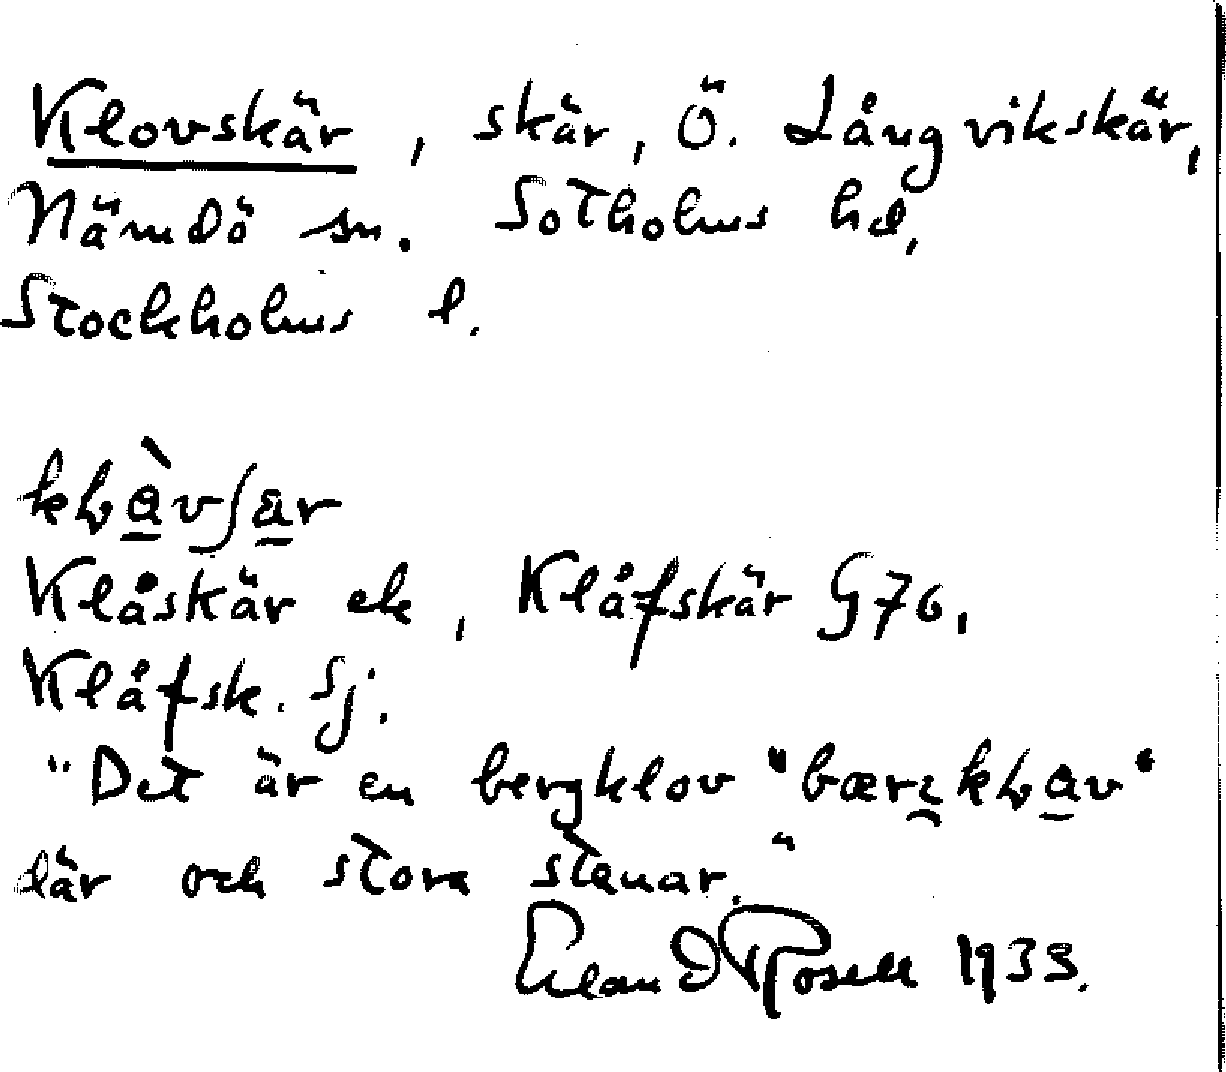 Klovskär, skär, Ö. Långvikskär,
Nämdö sn. Sotholms hd,
Stockholms l.
Klåskär ek, Klåfskär G70,
Klåfsk. Sj.
"Det är en bergklov
där och stora stenar."
Erland Rosell 1933.